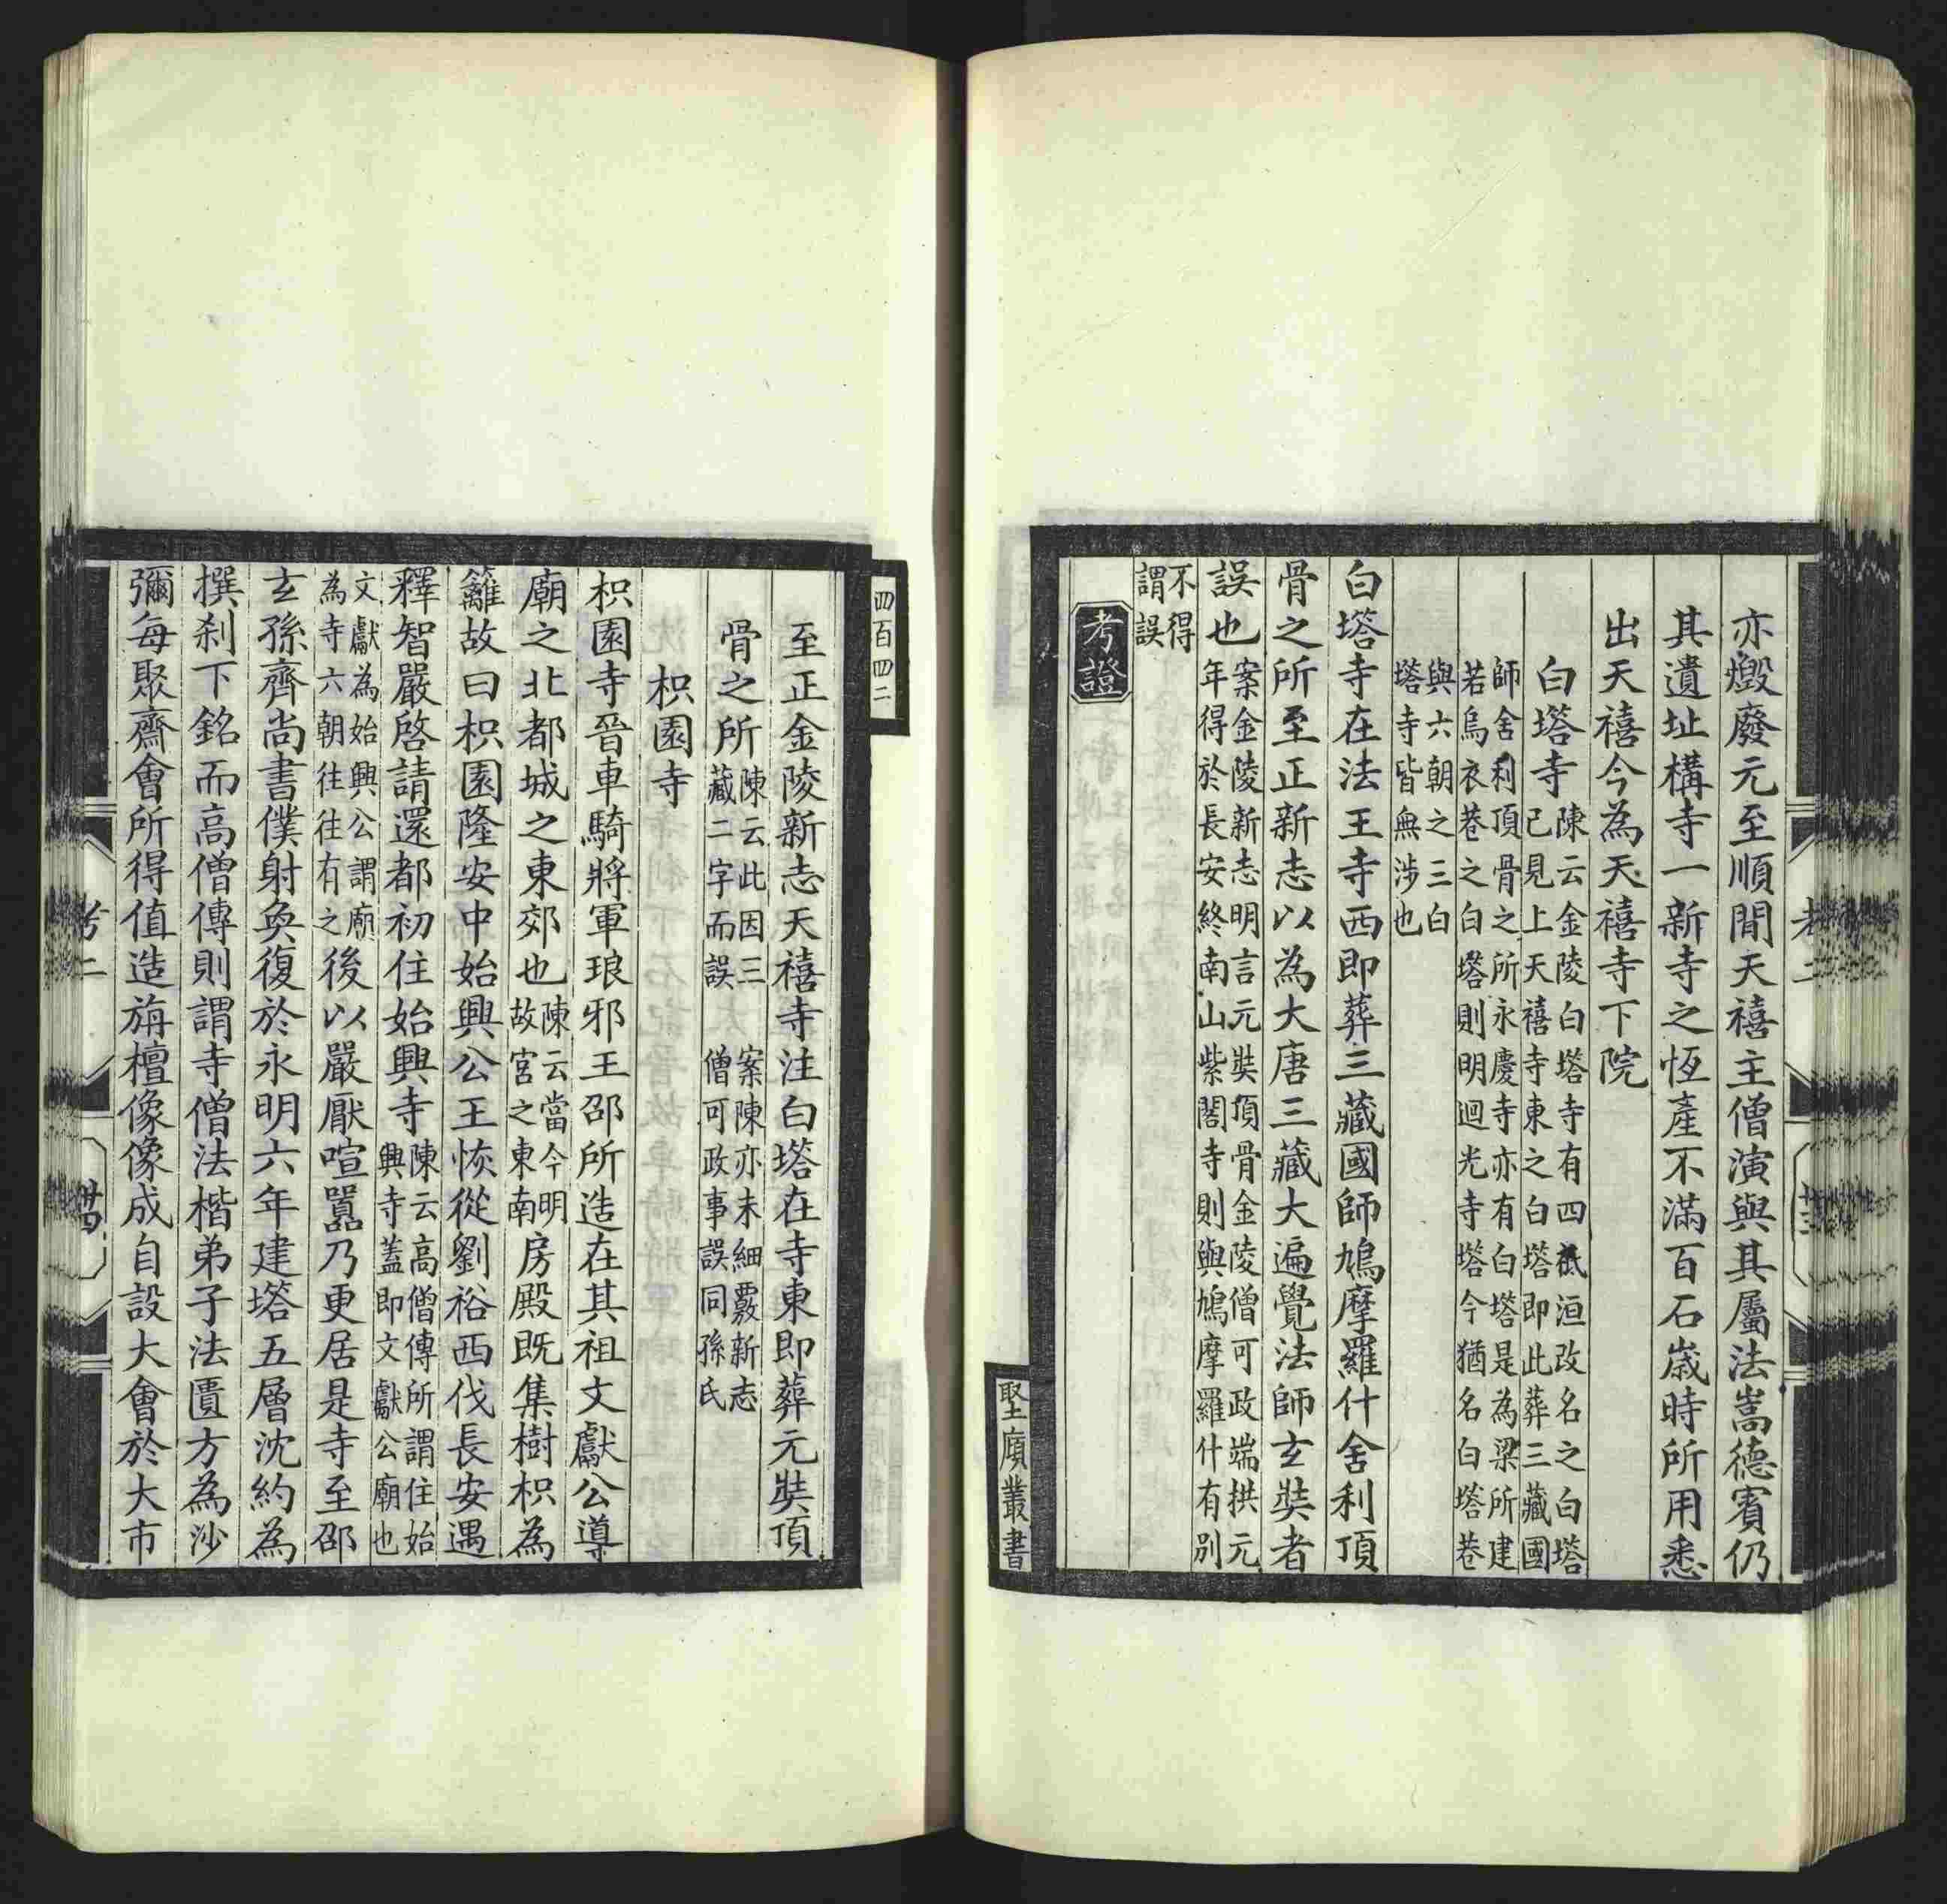 亦燬廢元至順間天禧主僧演與其屬法嵩德賓仍
其遺址構寺一新寺之恆產不滿百石歲時所用悉
出天禧今為天禧寺下院
白塔寺
陳云金陵白塔寺有四祇洹改名之白塔
已見上天禧寺東之白塔即此葬三藏國
師舍利頂骨之所永慶寺亦有白塔是為梁所建
若烏衣巷之白塔則明迴光寺塔今猶名白塔巷
與六朝之三白
塔寺皆無涉也
白塔寺在法王寺西即葬三藏國師鳩摩羅什舍利頂
骨之所至正新志以為大唐三藏大遍覺法師玄奘者
誤也
案金陵新志明言元奘頂骨金陵僧可政端拱元
年得於長安終南山紫閣寺則與鳩摩羅什有別
不得
謂誤
考證
堅廎叢書
四百四二
至正金陵新志天禧寺注白塔在寺東即葬元奘頂
骨之所
陳云此因三
藏二字而誤
案陳亦未細覈新志
僧可政事誤同孫氏
枳園寺
枳園寺晉車騎將軍琅邪王邵所造在其祖文獻公導
廟之北都城之東郊也
陳云當今明
故宮之東南
房殿既集樹枳為
籬故曰枳園隆安中始興公王恢從劉裕西伐長安遇
釋智嚴啓請還都初住始興寺
陳云高僧傳所謂住始
興寺蓋即文獻公廟也
文獻為始興公謂廟
為寺六朝往往有之
後以嚴厭喧囂乃更居是寺至邵
玄孫齊尚書僕射奐復於永明六年建塔五層沈約為
撰刹下銘而高僧傳則謂寺僧法楷弟子法匱方為沙
彌每聚齋會所得值造旃檀像像成自設大會於大市
考二